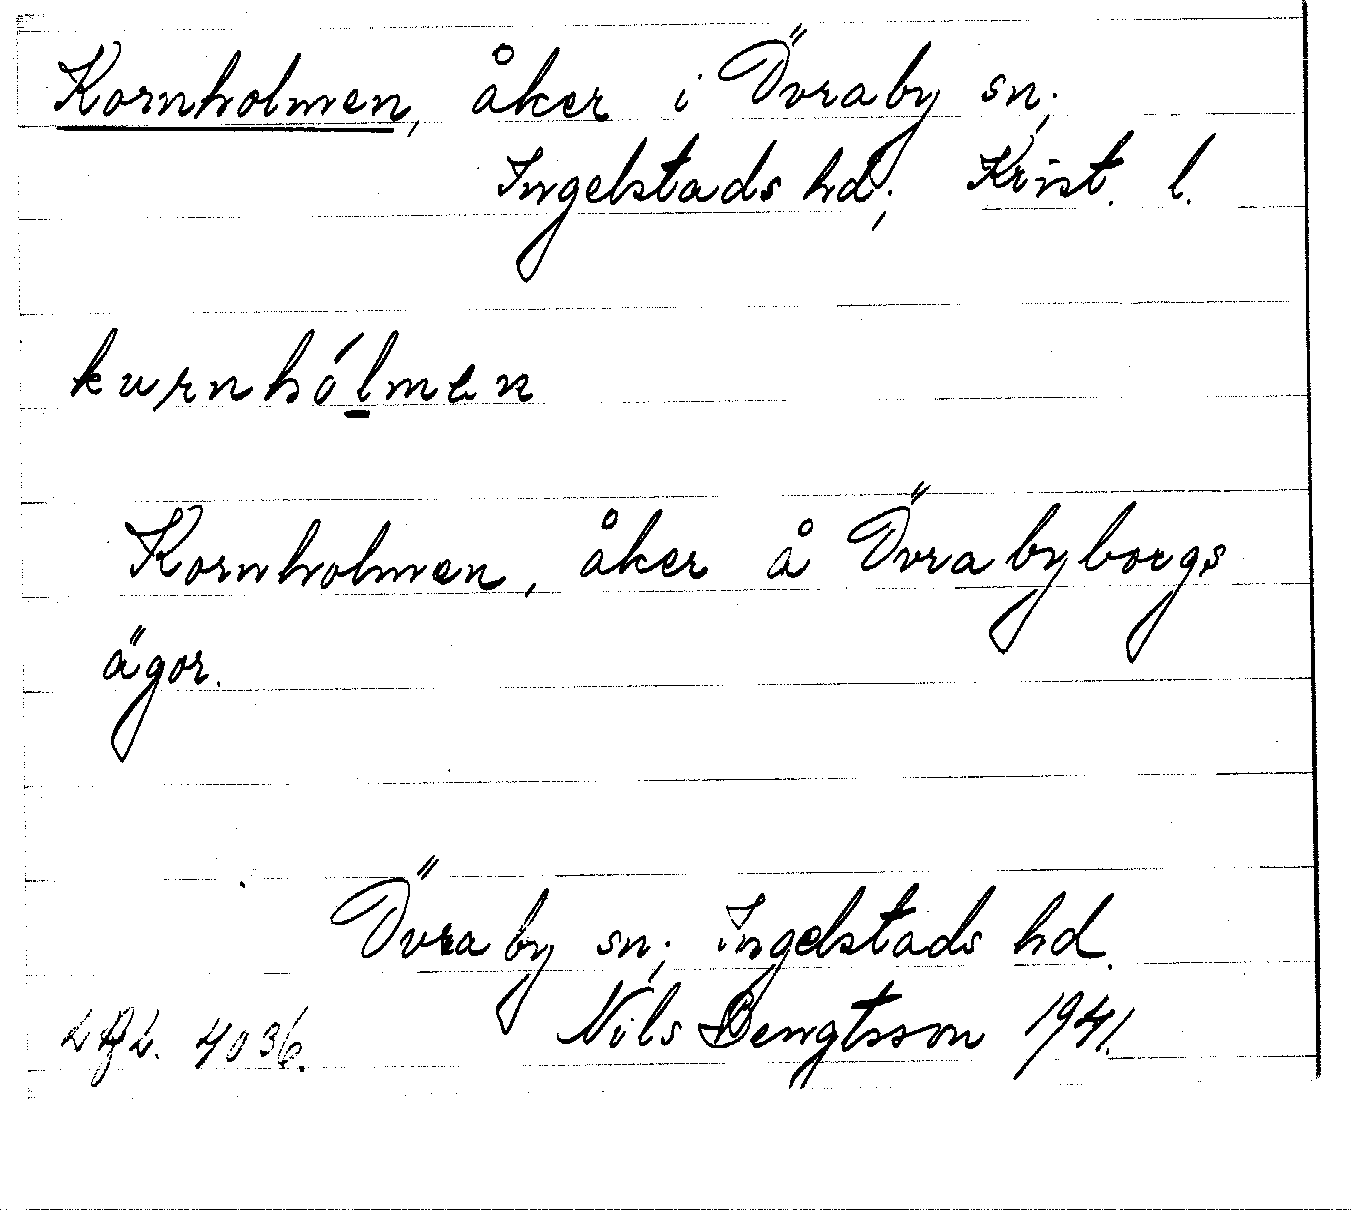 Kornholmen, åker i Övraby sn;
Ingelstads hd; Krist. l.
kurnhólmen
Kornholmen, åker å Övrabyborgs
ägor.
Övraby sn; Ingelstads hd.
4036. Nils Bengtsson 1941.